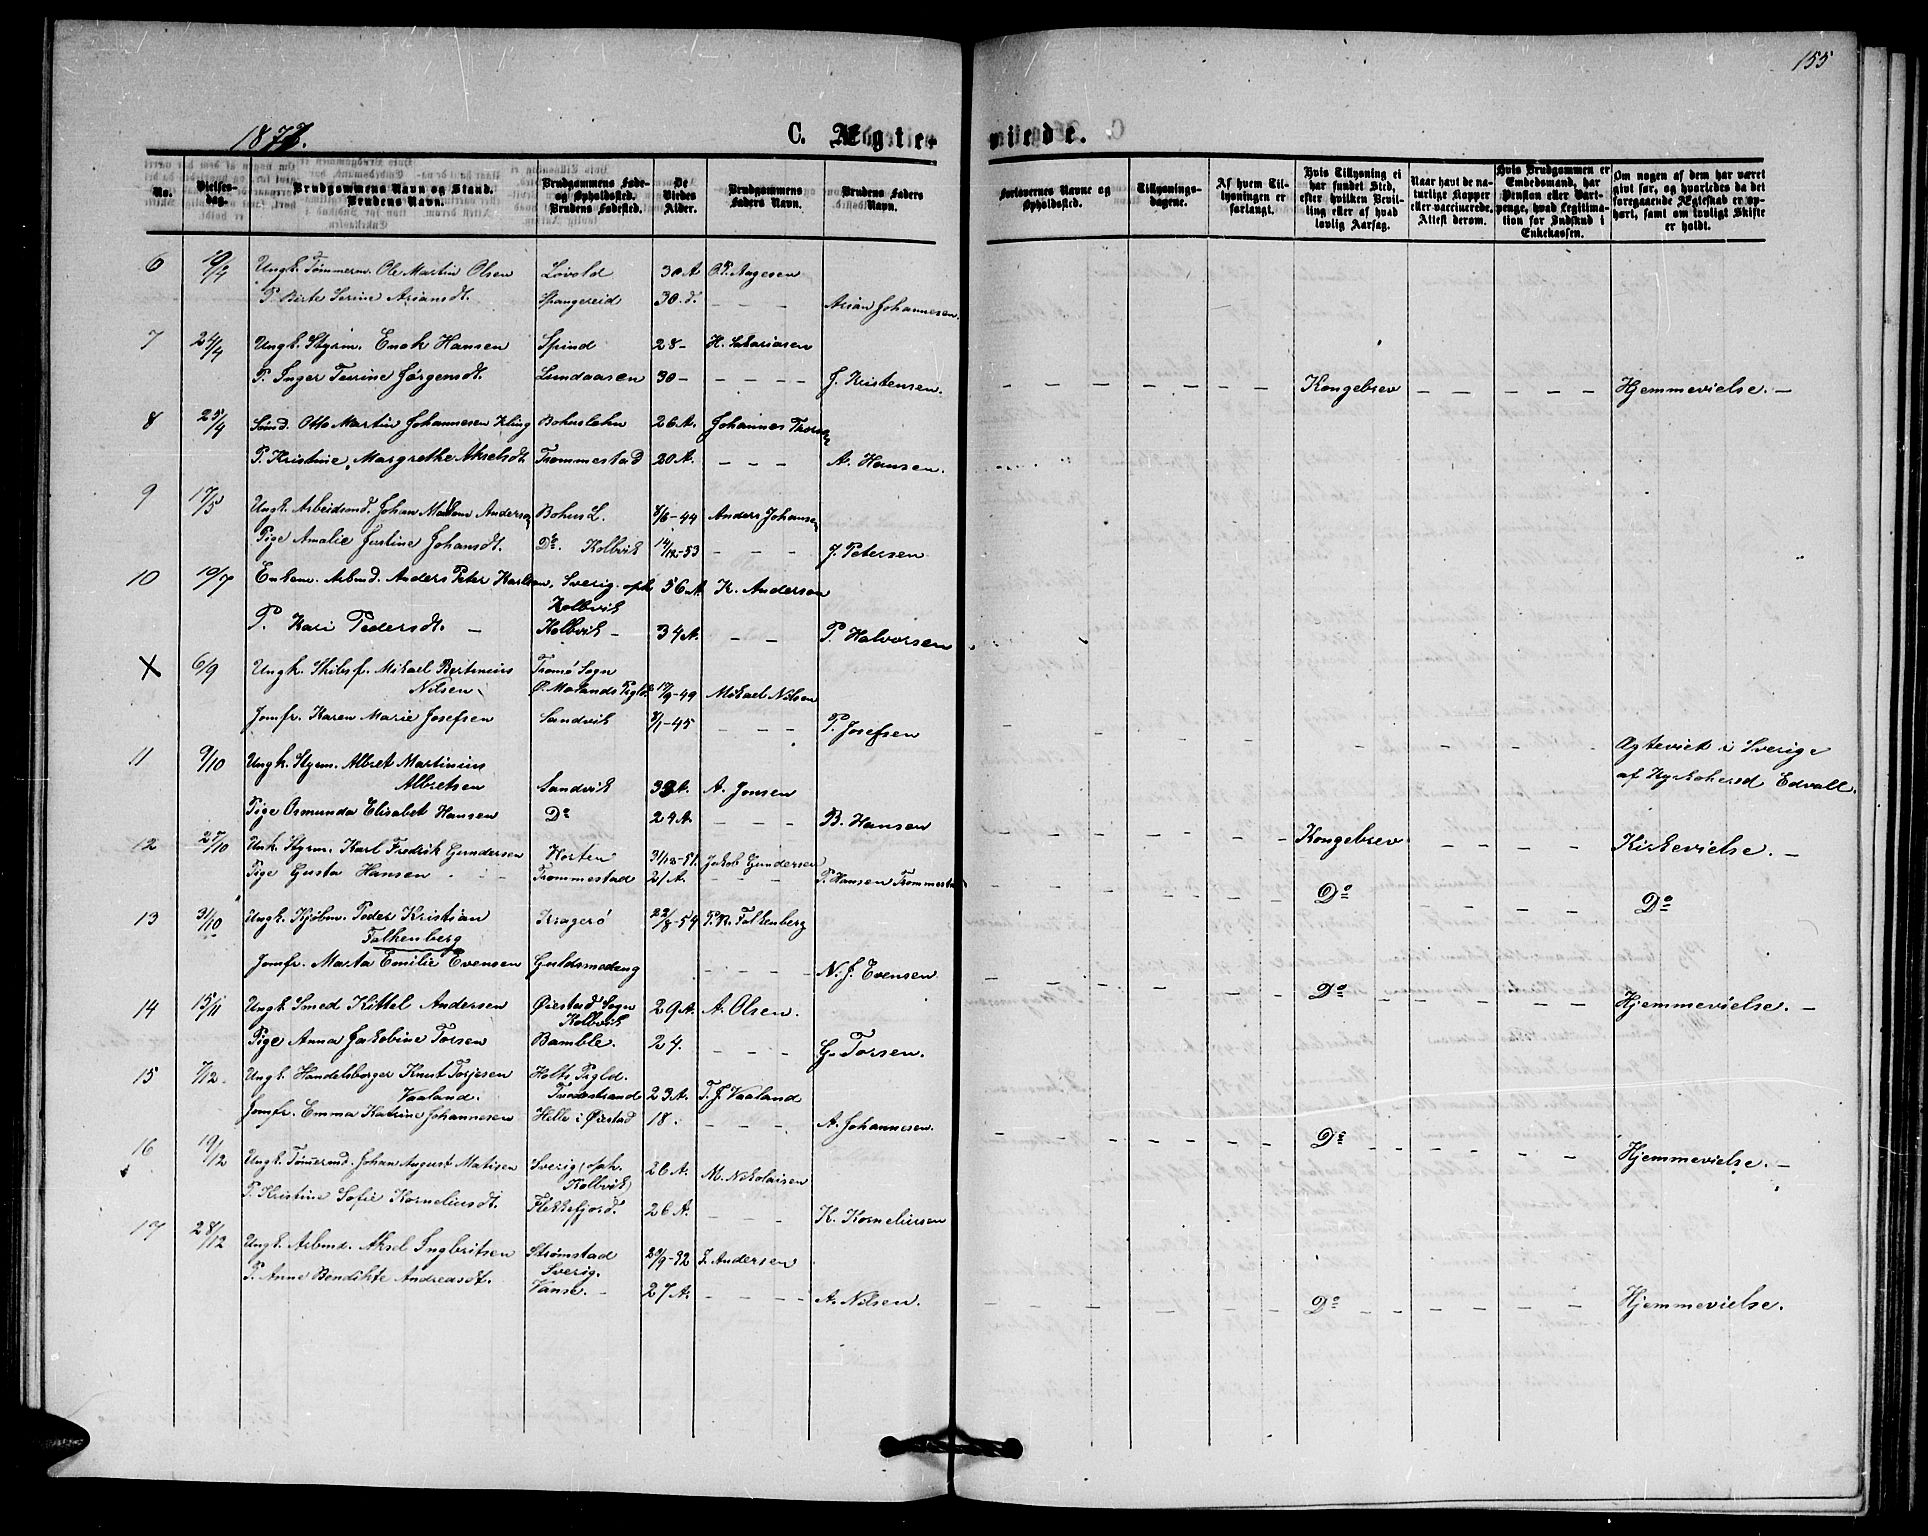 155
1877.
C. Ægte-
viede.
No.
Vielses-
dag.
Brudgommens Navn og Stand.
Brudens Navn.
Brudgommens Føde-
og Opholdssted.
Brudens Fødested.
De
Viedes
Alder.
Brudgommens
Faders Navn.
Brudens Faders
Navn.
Forlovernes Navne og
Opholdssted.
Tillysnings-
dagene.
Af hvem Til-
lysningen er
forlangt.
Hvis Tillysning ei
har fundet Sted,
efter hvilken Bevil-
ling eller af hvad
lovlig Aarsag.
Naar havt de na-
turlige Kopper
eller vaccinerede,
Attest derom.
Hvis Brudgommen er
Embedsmand, har
Pension eller Vart-
penge, hvad Legitima-
tion for Indskud i
Enkekassen.
Om nogen af dem har været
givt før, og hvorledes da det
foregaaende Ægteskab er op-
hørt, samt om lovligt Skifte
er holdt.
6 Ungk. Tømmerm. Ole Martin Olsen Lovold 30 A O. P. Aagesen
P. Birte Serine Ariansdt. Spangereid 30. d. - - - Arian Johannesen.
7 24/4 Ungk. Styrm. Enok Hansen Spind 28 - H. Sakariasen
P. Inger Terrine Jørgensdt. Lundaasen 30 - - - - - J. Kristensen. Kongebrev Hjemmevielse. -
8 25/4 Otto Martin Johannesen Kling Bohuslehn 26 A. Johannes
P. Kristine Margrethe Akselsdt. Trommestad 20 A. - - - A. Hansen.
9 17/5 Ungk. Arbeidsmd. Johan Anderson Bohus L. 8/6-44 Anders Johansen
Pige Amalie Justine Johansdt. Do. Kolbvik 14/12-53 - - - J. Petersen
10 19/7 Enkem. Arbmd. Anders Peter Karlson, Sverig. oph. 56 A. K. Anderson
Kolbvik
P. Kari Pedersdt. - Kolbvik - 34 A. - - P. Halvorsen
X 6/9 Ungk. Skibsf. Mikael Bertinius Tromø Sogn
Nilsen Ø. Molands Prgld. 17/9-49 Mikael Nilsen
Jomfr. Karen Marie Josefsen Sandvik 8/1-45 - - - P. Josefsen
Ægteviet i Sverige
11 9/10 Ungk. Styrm. Albret Martinius
af Kyrkoherd Edvall.
Albretsen Sandvik A. Jonsen
Pige Osmunda Elisabet Hansen Do 24 A. - - - B. Hansen Kongebrev Kirkevielse. -
12 27/10 Unk. Styrm. Karl Fredrik Gundersen Horten 31/12-51. Jakob Gundersen
Pige Gusta Hansen Trommestad 21 A. - - - P. Hansen Trommestad Do Do
13 31/10 Ungk. Kjøbm. Peder Kristian Kragerø 22/8-54 P. R. Falkenberg
Falkenberg
Jomfr. Marta Emilie Evensen Guldsmedeng - - - - N. J. Evensen Do Hjemmevielse. -
14 15/11 Ungk. Smed Kittel Andersen Øiestad Sogn 29 A. A. Olsen.
Kolbvik
Pige Anna Jakobine Torsen Bamble. 24. - - - G. Torsen.
15 7/12. Ungk. Handelsborger Knut Torjesen Holts Prgld.
Vaaland. Tvedestrand 23 A. T. J. Vaaland
Jomfr. Emma Katrine Johannesen Helle i Øiestad 18. - - - A. Johannesen. Do Hjemmevielse. -
16 19/12 Ungk. Tømermd. Johan August Matisen Sverig, oph. 26 A. M. Nikolaisen
Kolbvik
P. Kristine Sofie Korneliusdt. Flekkefjord. 26 A. - - - K. Korneliusen
17 28/12 Ungk. Arbmd. Aksel Ingbritsen Strømstad I. Andersen
Sverig.
P. Anne Bendikte Andreasdt. Vanse. - 27 A. - - - - A. Nilsen. Do Hjemmevielse.